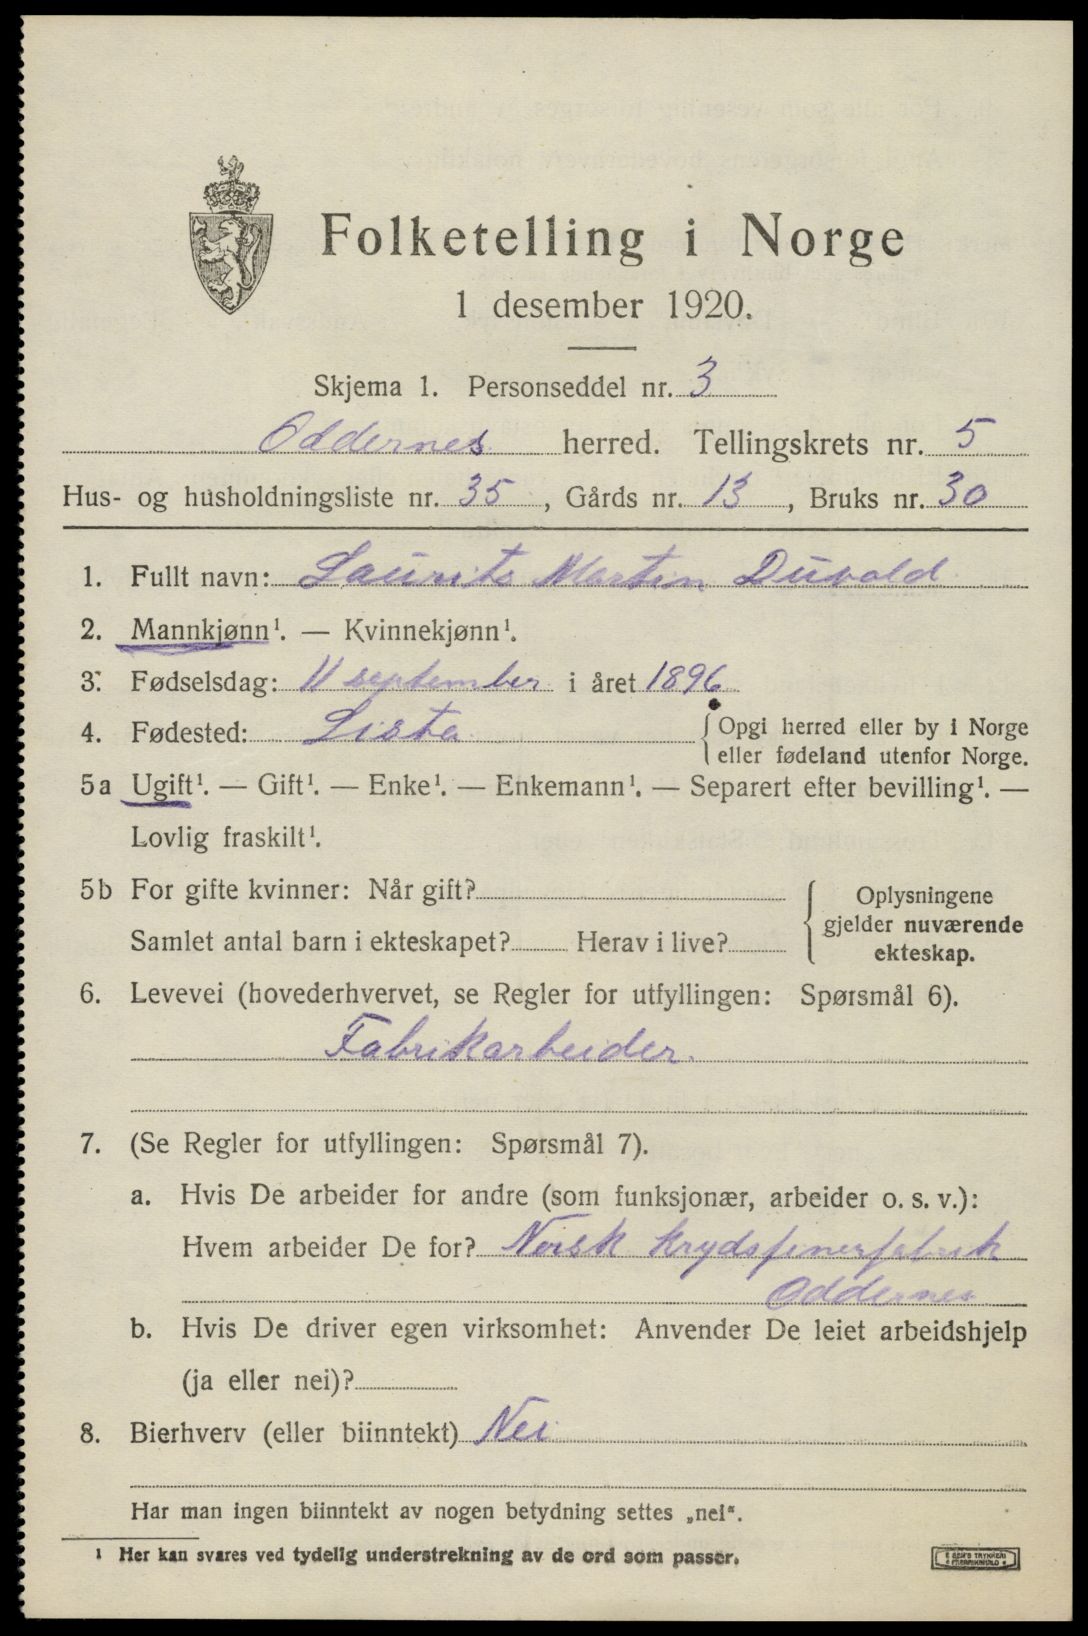 Folketelling i Norge
1 desember 1920.
Skjema 1. Personseddel nr. 3
Oddernes herred. Tellingskrets nr. 5
Hus- og husholdningsliste nr. 35, Gårds nr. 13, Bruks nr. 30
1. Fullt navn: Laurits Martin Duvold
2. Mannkjønn¹. — Kvinnekjønn¹.
3. Fødselsdag: 11 september i året 1896
4. Fødested: Lista {Opgi herred eller by i Norge
eller fødeland utenfor Norge.
5a Ugift¹. — Gift¹. — Enke¹. — Enkemann¹. — Separert efter bevilling¹. —
Lovlig fraskilt¹.
5b For gifte kvinner: Når gift?
Samlet antal barn i ekteskapet? Herav i live?
{ Oplysningene
gjelder nuværende
ekteskap.
6. Levevei (hovederhvervet, se Regler for utfyllingen: Spørsmål 6).
Fabrikarbeider.
7. (Se Regler for utfyllingen: Spørsmål 7).
a. Hvis De arbeider for andre (som funksjonær, arbeider o. s. v.):
Hvem arbeider De for? Norsk krydsfinerfabrik
Oddernes
b. Hvis De driver egen virksomhet: Anvender De leiet arbeidshjelp
(ja eller nei)?
8. Bierhverv (eller biinntekt) Nei
Har man ingen biinntekt av nogen betydning settes „nei“.
¹ Her kan svares ved tydelig understrekning av de ord som passer.